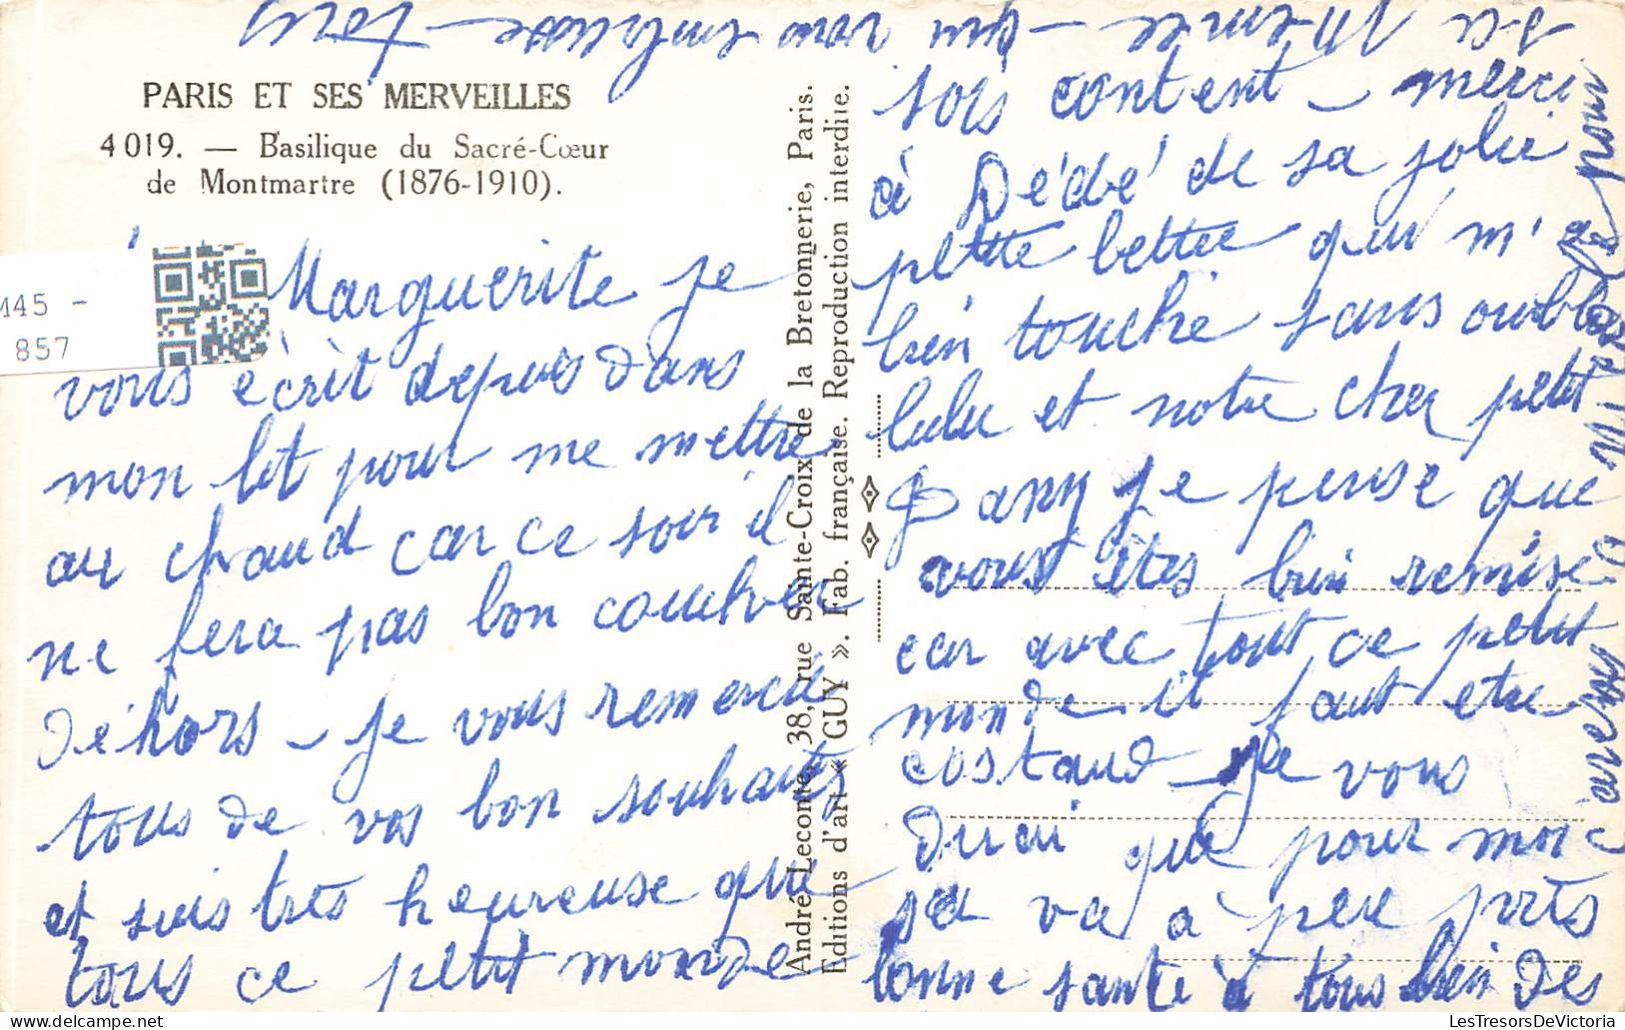 PARIS ET SES MERVEILLES
4019. — Basilique du Sacré-Cœur
de Montmartre (1876-1910).
M45 -
857
Marguerite je
vous ècrit depuis dans
mon lit pour me mettre
au chaud car ce soir il
ne fera pas bon coucher
dehors – je vous remercie
tous de vos bon souhaits
et suis très heureuse que
tous ce petit monde
André Leconte, 38, rue Sainte-Croix de la Bretonnerie, Paris.
Editions d'art « GUY ». Fab. française. Reproduction interdite.
sois content – merci
à Dédé de sa jolie
petite lettre qui m'a
bien touché sans oublier
lulu et notre cher petit
Dany je pense que
vous êtes bien remise
car avec tout ce petit
monde il faut etre
costaud – Je vous
dirai que pour moi
sa va à peu près
bonne santé à tous bien des
caresses
pour
sa Mémée – qui vous embrasse – tous
LesTresorsDeVictoria